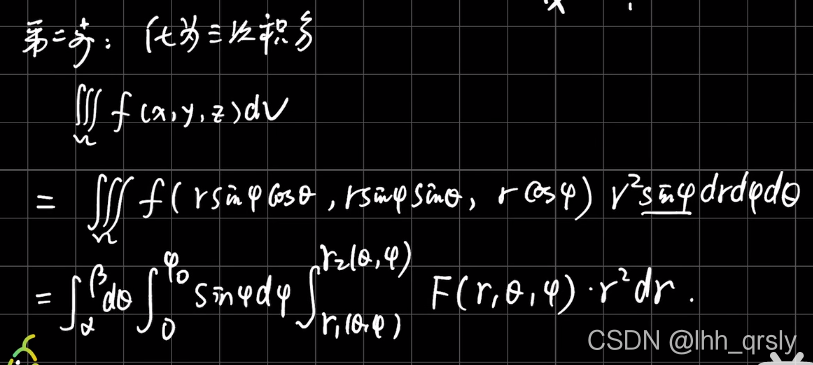 第二步：化为三次积分
∭_Ω f(x,y,z)dV
= ∭_Ω f(rsinφcosθ, rsinφsinθ, rcosφ) r²sinφdrdφdθ
= ∫_α^β dθ ∫_0^φ₀ sinφdφ ∫_{r₁(θ,φ)}^{r₂(θ,φ)} F(r,θ,φ)·r²dr.
CSDN @lhh_qrsly